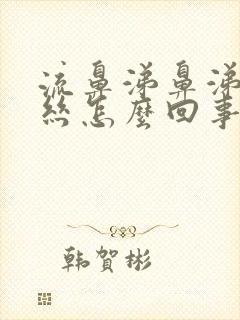 流鼻涕鼻涕
絲怎麼回事
韩賀彬